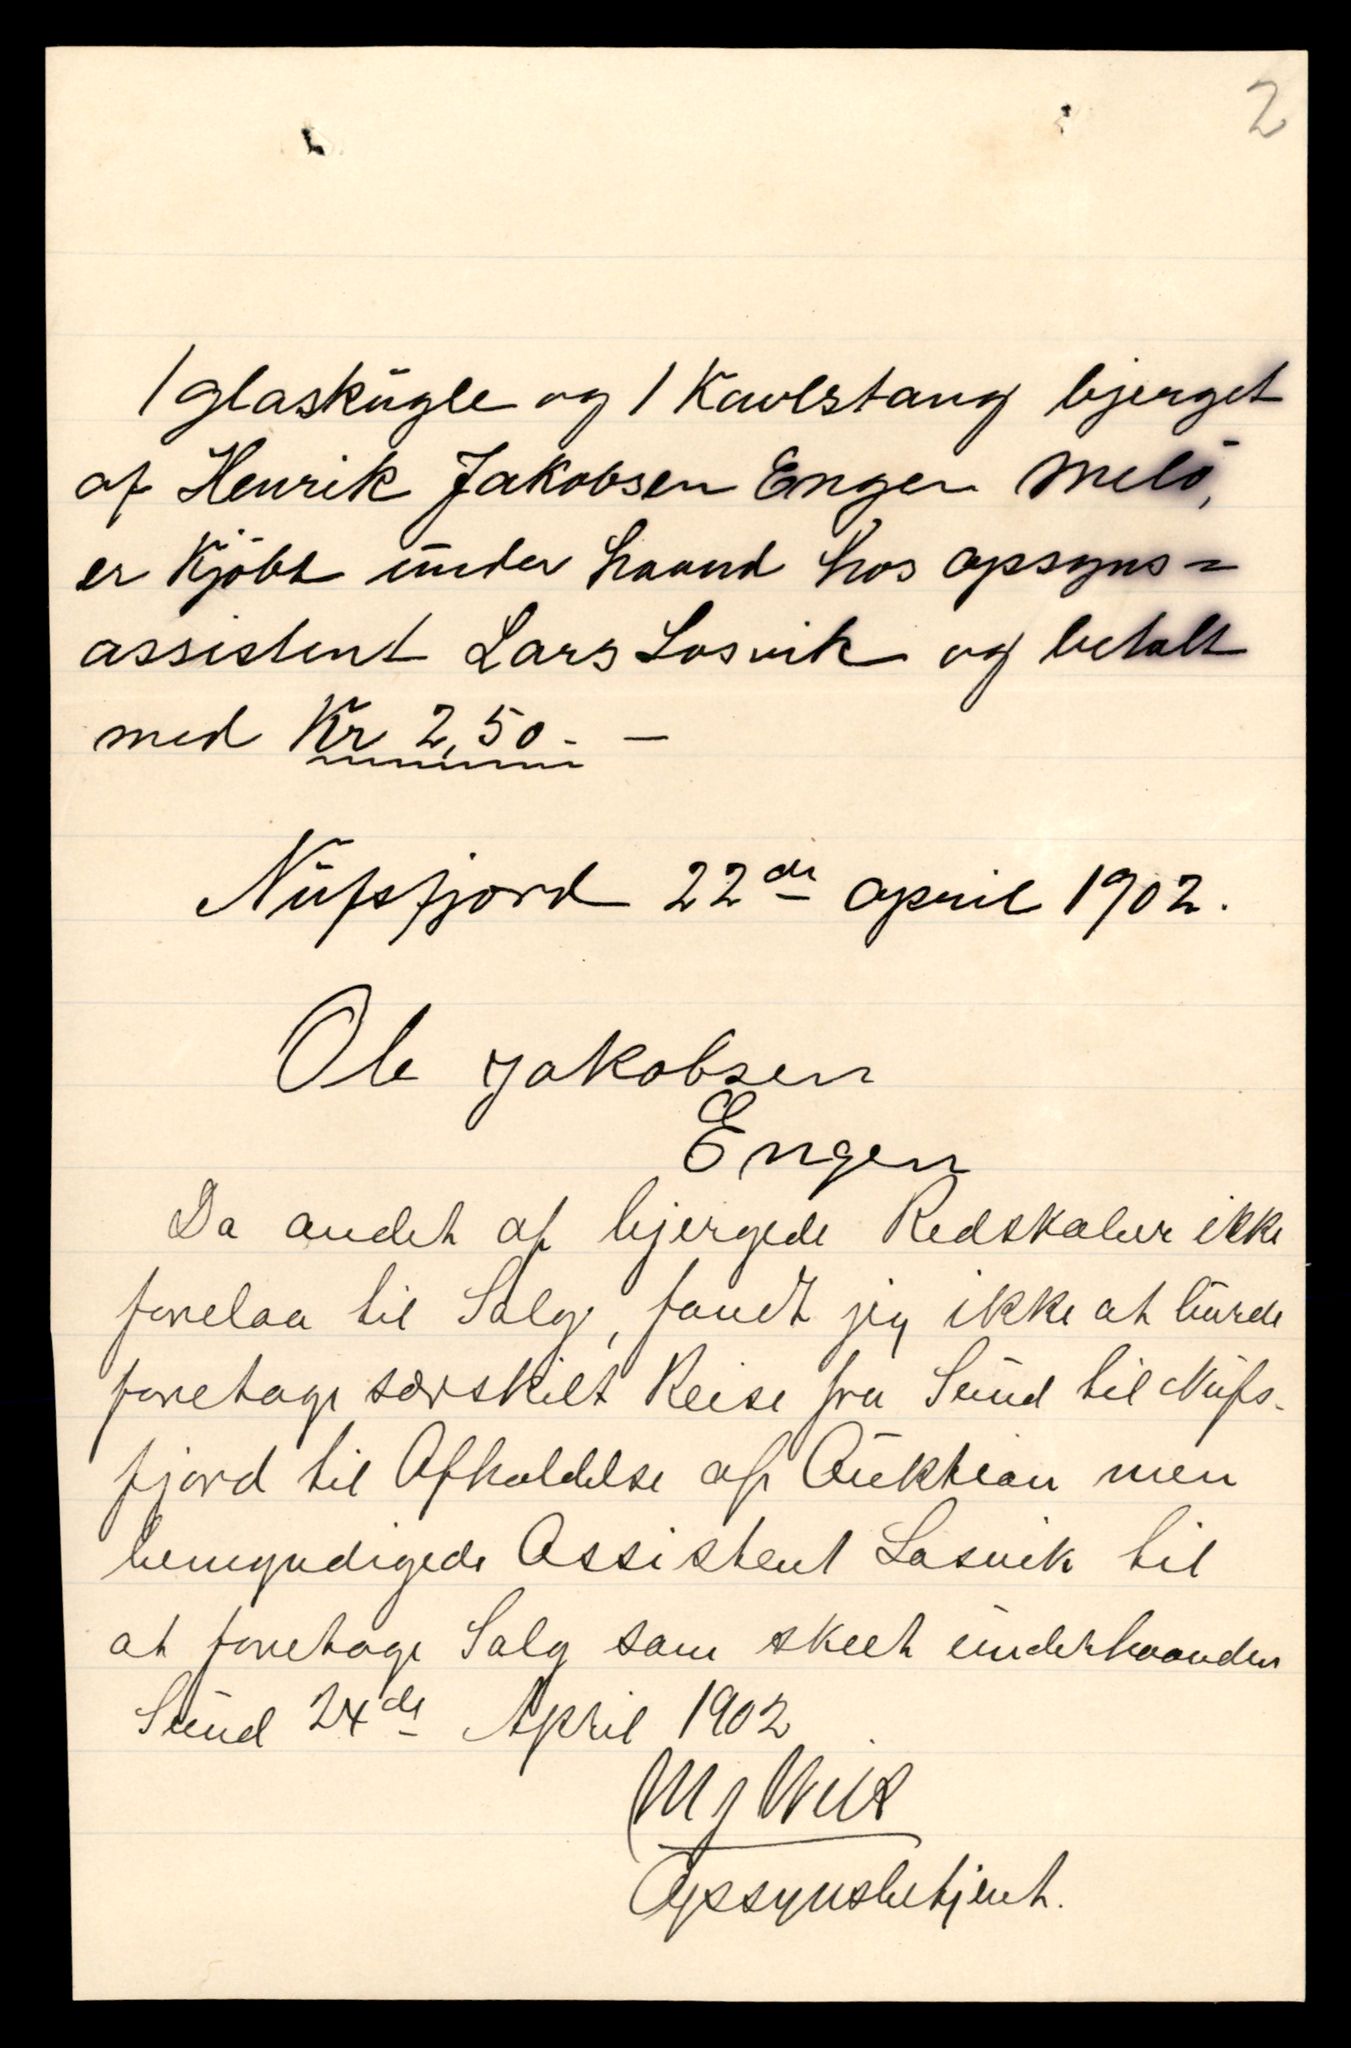 2
1 glaskugle og 1 Kavlstang bjerget
af Henrik Jakobsen Engen Melö,
er Kjöbt under haand hos opsyns=
assistent Lars Losvik og betalt
med Kr 2,50. —
Nufsfjord 22de april 1902.
Ole Jakobsen
Engen
Da andet af bjergede Redskaber ikke
forelaa til Salg, fandt jeg ikke at burde
foretage særskilt Reise fra Sund til Nufs-
fjord til Afholdelse af Auktion men
bemyndigede Assistent Losvik til
at foretage Salg som skeet underhaanden
Sund 24de April 1902
Opsynsbetjent.